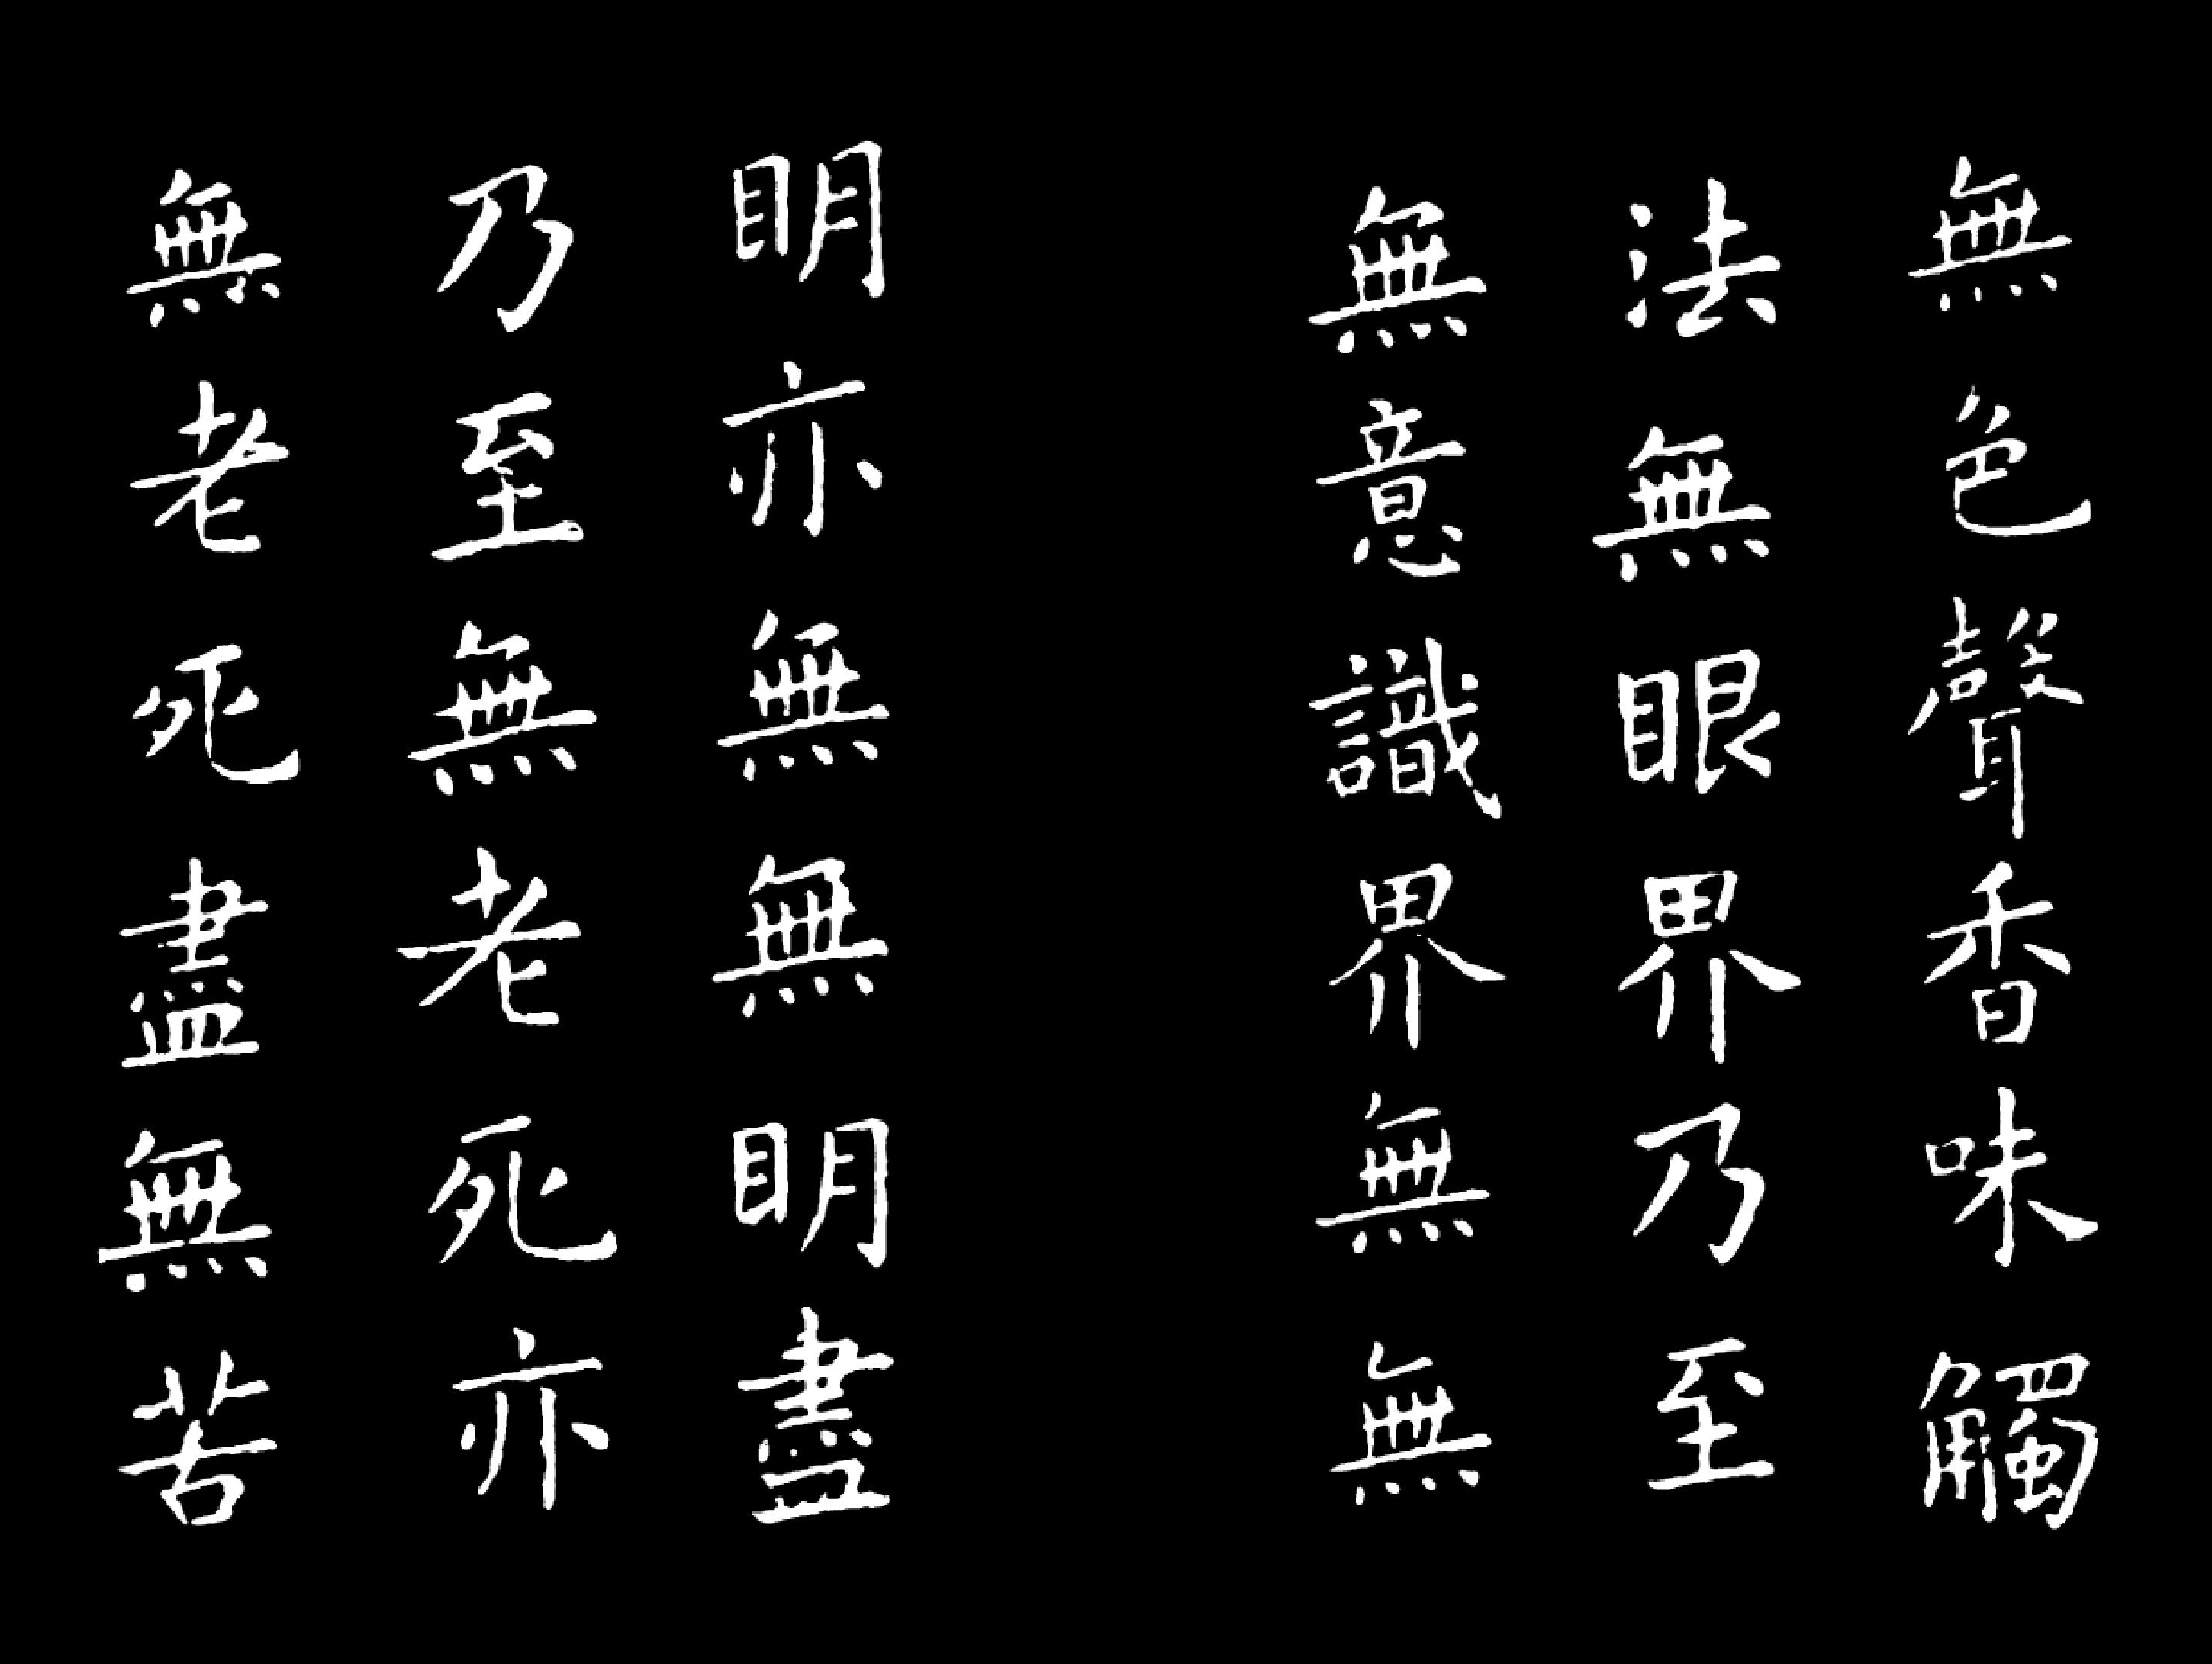 無色聲香味觸
法無眼界乃至
無意識界無無
明亦無無明盡
乃至無老死亦
無老死盡無苦